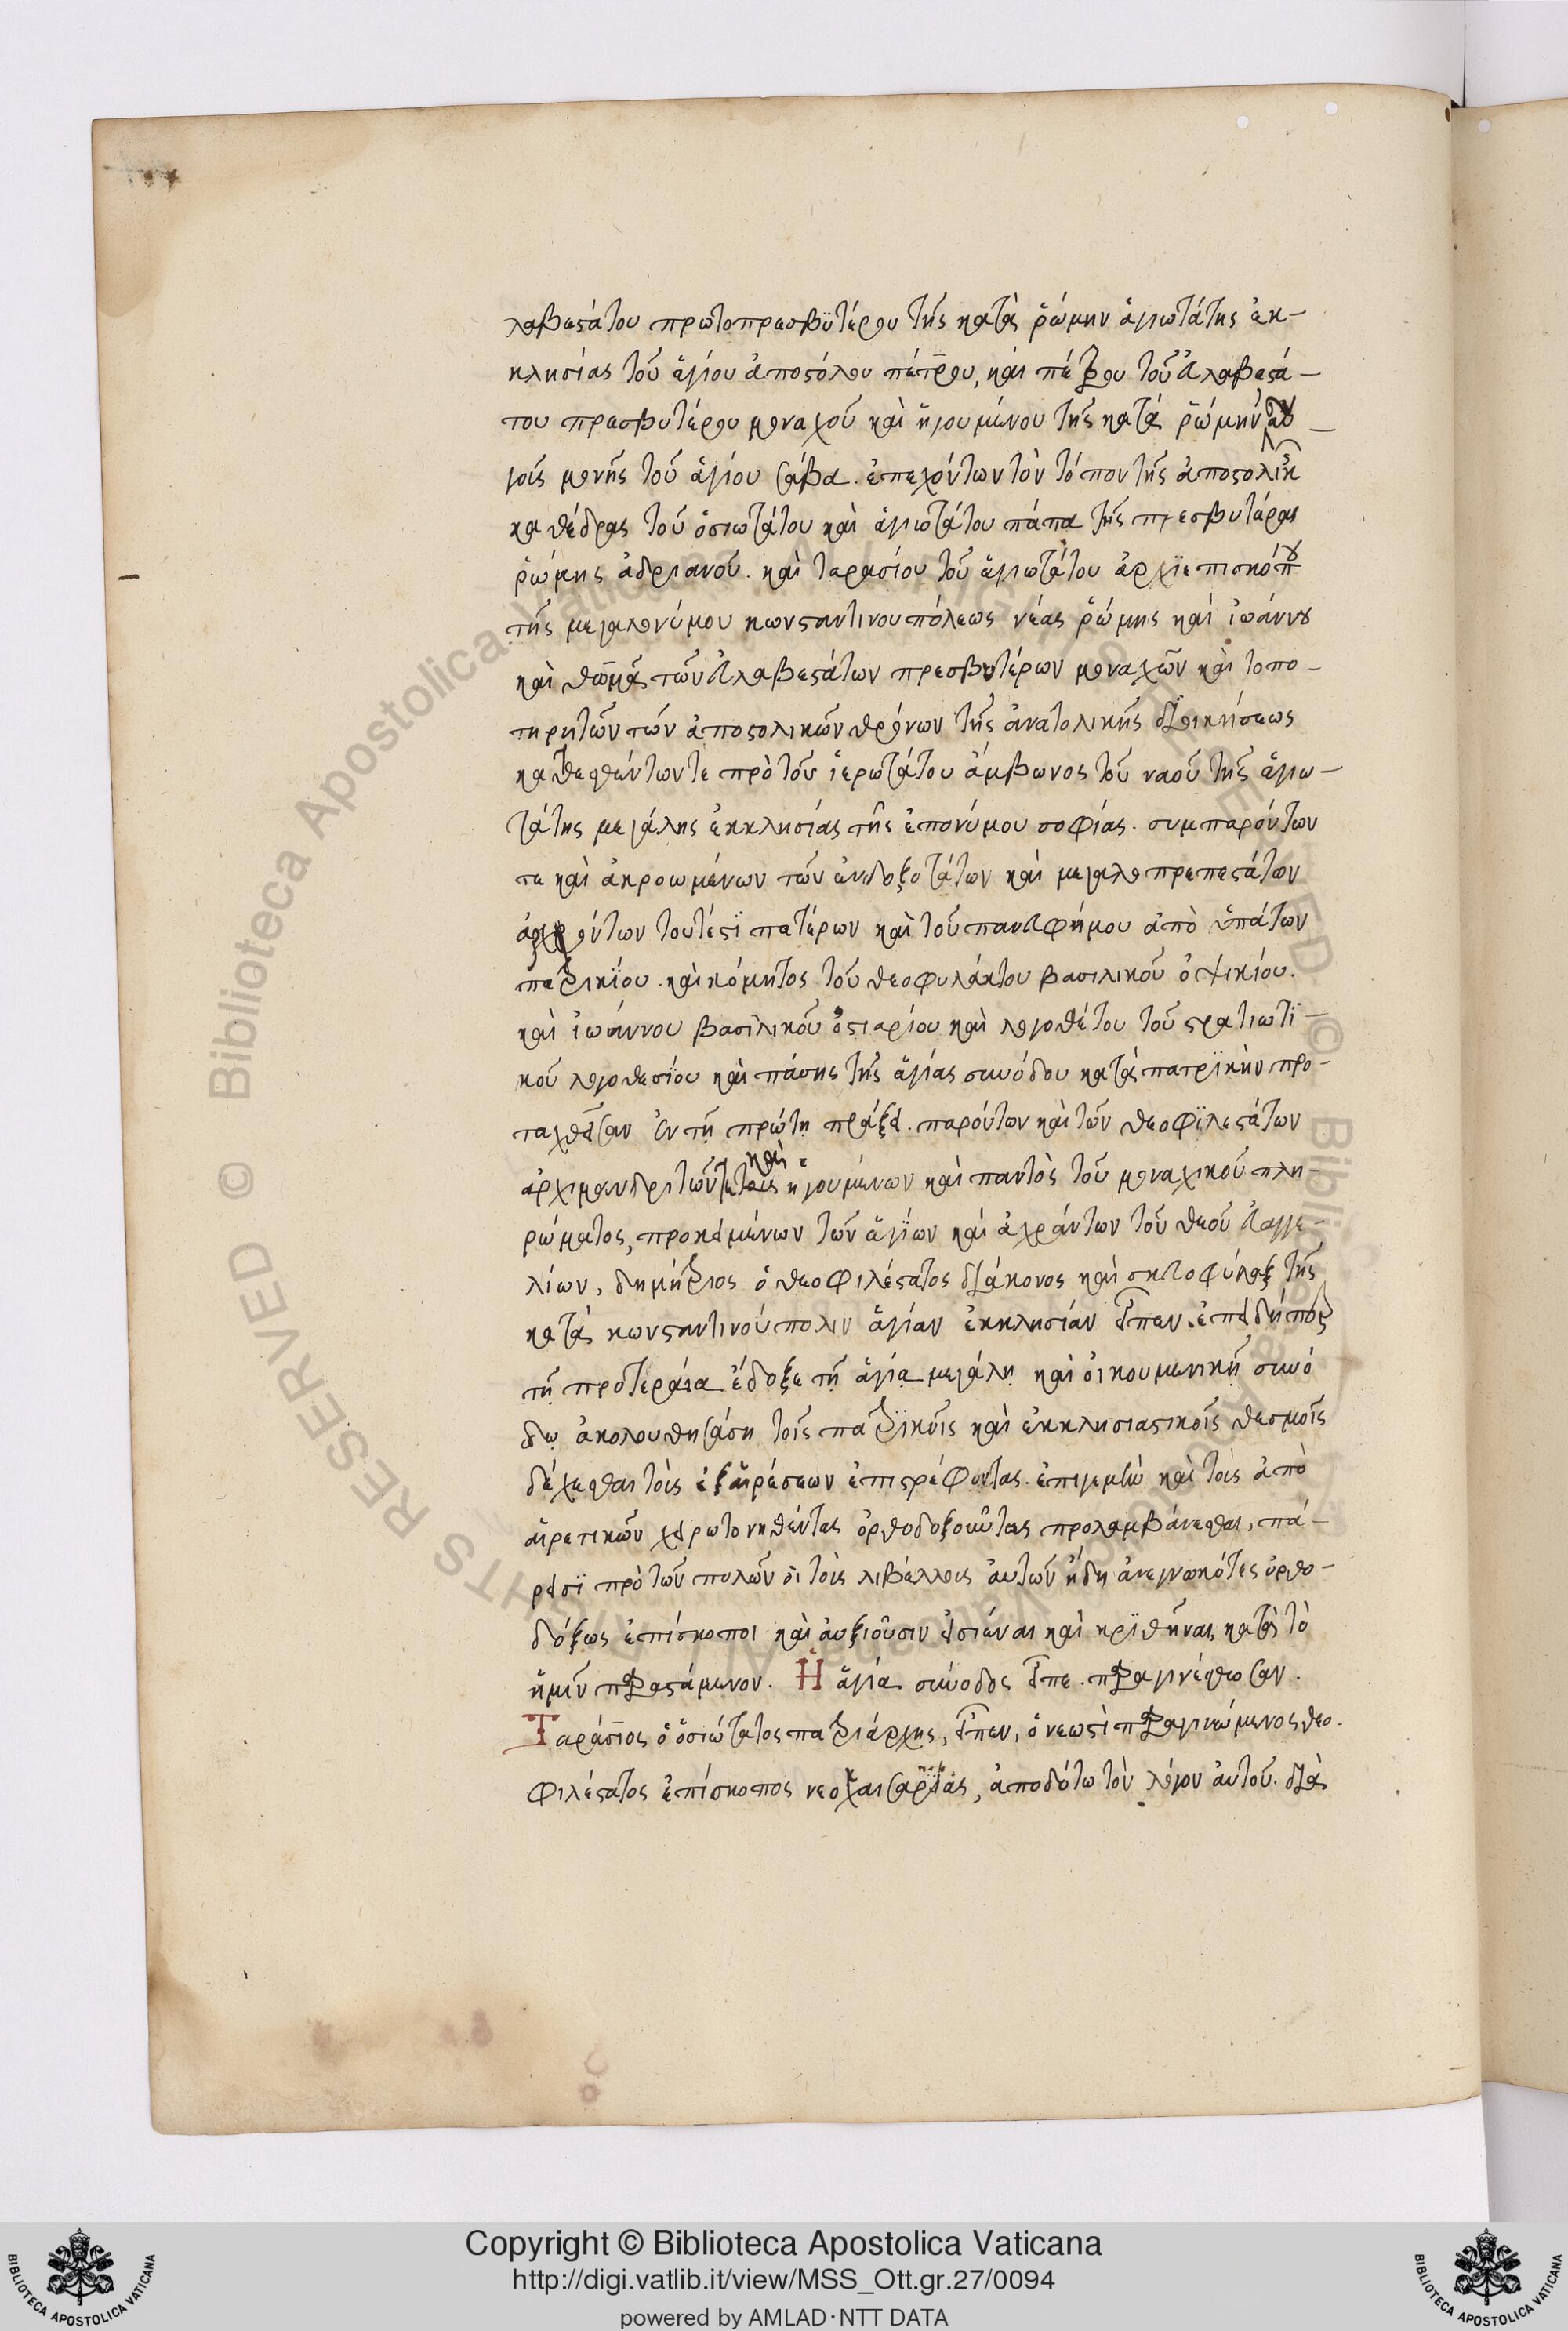 λαβεστάτου πρωτοπρεσβϋτέρου τῆς κατὰ ῥώμην ἁγιωτάτης ἐκ-
κλησίας τοῦ ἁγίου ἀποστόλου πέτρου, καὶ πέτρου τοῦ εὐλαβεστά-
του πρεσβυτέρου μοναχοῦ καὶ ἡγουμένου τῆς κατὰ ῥώμην
μονῆς τοῦ ἁγίου σάβα. ἐπεχόντων τὸν τόπον τῆς ἀποστολικῆς
καθέδρας τοῦ ὁσιωτάτου καὶ ἁγιωτάτου πάπα τῆς πρεσβυτέρας
ῥώμης ἀδριανοῦ. καὶ ταρασίου τοῦ ἁγιωτάτου ἀρχϊεπισκόπου
τῆς μεγαλονύμου κωνσταντινουπόλεως νέας ῥώμης καὶ ἰωάννου
καὶ θωμᾶ τῶν εὐλαβεστάτων πρεσβυτέρων μοναχῶν καὶ τοπο-
τηρητῶν τῶν ἀποστολικῶν θρόνων τῆς ἀνατολικῆς διοικήσεως
καθεσθέντων τε πρὸ τοῦ ἱερωτάτου ἄμβωνος τοῦ ναοῦ τῆς ἁγιω-
τάτης μεγάλης ἐκκλησίας τῆς ἐπονύμου σοφίας. συμπαρόντων
τε καὶ ἀκροωμένων τῶν ἐνδοξοτάτων καὶ μεγαλοπρεπεστάτων
ἀρχόντων τουτέστϊ πατέρων καὶ τοῦ πανευφήμου ἀπὸ ὑπάτων
πατρικίου. καὶ κόμητος τοῦ θεοφυλάκτου βασιλικοῦ ὀψικίου.
καὶ ἰωάννου βασιλικοῦ ὀστιαρίου καὶ λογοθέτου τοῦ στρατιωτι-
κοῦ λογοθεσίου καὶ πάσης τῆς ἁγίας συνόδου κατὰ πατρϊκὴν προ-
ταχθεῖσαν ἐν τῇ πρώτῃ πράξει. παρόντων καὶ τῶν θεοφϊλεστάτων
ἀρχιμανδριτῶν καὶ ἡγουμένων καὶ παντὸς τοῦ μοναχικοῦ πλη-
ρώματος, προκειμένων τῶν ἁγίων καὶ ἀχράντων τοῦ θεοῦ εὐαγγε-
λίων, δημήτριος ὁ θεοφιλέστατος διάκονος καὶ σκευοφύλαξ τῆς
κατὰ κωνσταντινούπολιν ἁγίαν ἐκκλησίαν εἶπεν. ἐπειδήπερ
τῇ προτεραία ἔδοξε τῇ ἁγίᾳ μεγάλῃ καὶ οἰκουμενικῇ συνό
δῳ ἀκολουθησάση τοῖς πατρϊκοῖς καὶ ἐκκλησιαστικοῖς θεσμοῖς
δέχεσθαι τοὺς ἐξ αἱρέσεων ἐπιστρέφοντας. ἐπιγεμὴν καὶ τοὺς ἀπὸ
αἱρετικῶν χειροτονηθέντας ὀρθοδοξοῦντας προλαμβάνεσθαι, πά-
ρεισϊ πρὸ τῶν πυλῶν οἱ τοὺς λιβέλλους αὐτῶν ἤδη ἀνεγνωκότες ὀρθο-
δόξως ἐπίσκοποι καὶ ἀυξιοῦσιν εἰσιέναι καὶ κρϊθῆναι, κατὰ τὸ
ἡμῖν παραστάμενον. Ἡ ἁγία σύνοδος εἶπε. παραγινέσθωσαν.
Ταράσιος ὁ ὁσιώτατος πατριάρχης, εἶπεν, ὁ νεωστὶ παραγινώμενος θεο-
φιλέστατος ἐπίσκοπος νεοκαισαρείας, ἀποδότω τὸν λόγον αὐτοῦ. διὰ
Copyright © Biblioteca Apostolica Vaticana
http://digi.vatlib.it/view/MSS_Ott.gr.27/0094
powered by AMLAD·NTT DATA